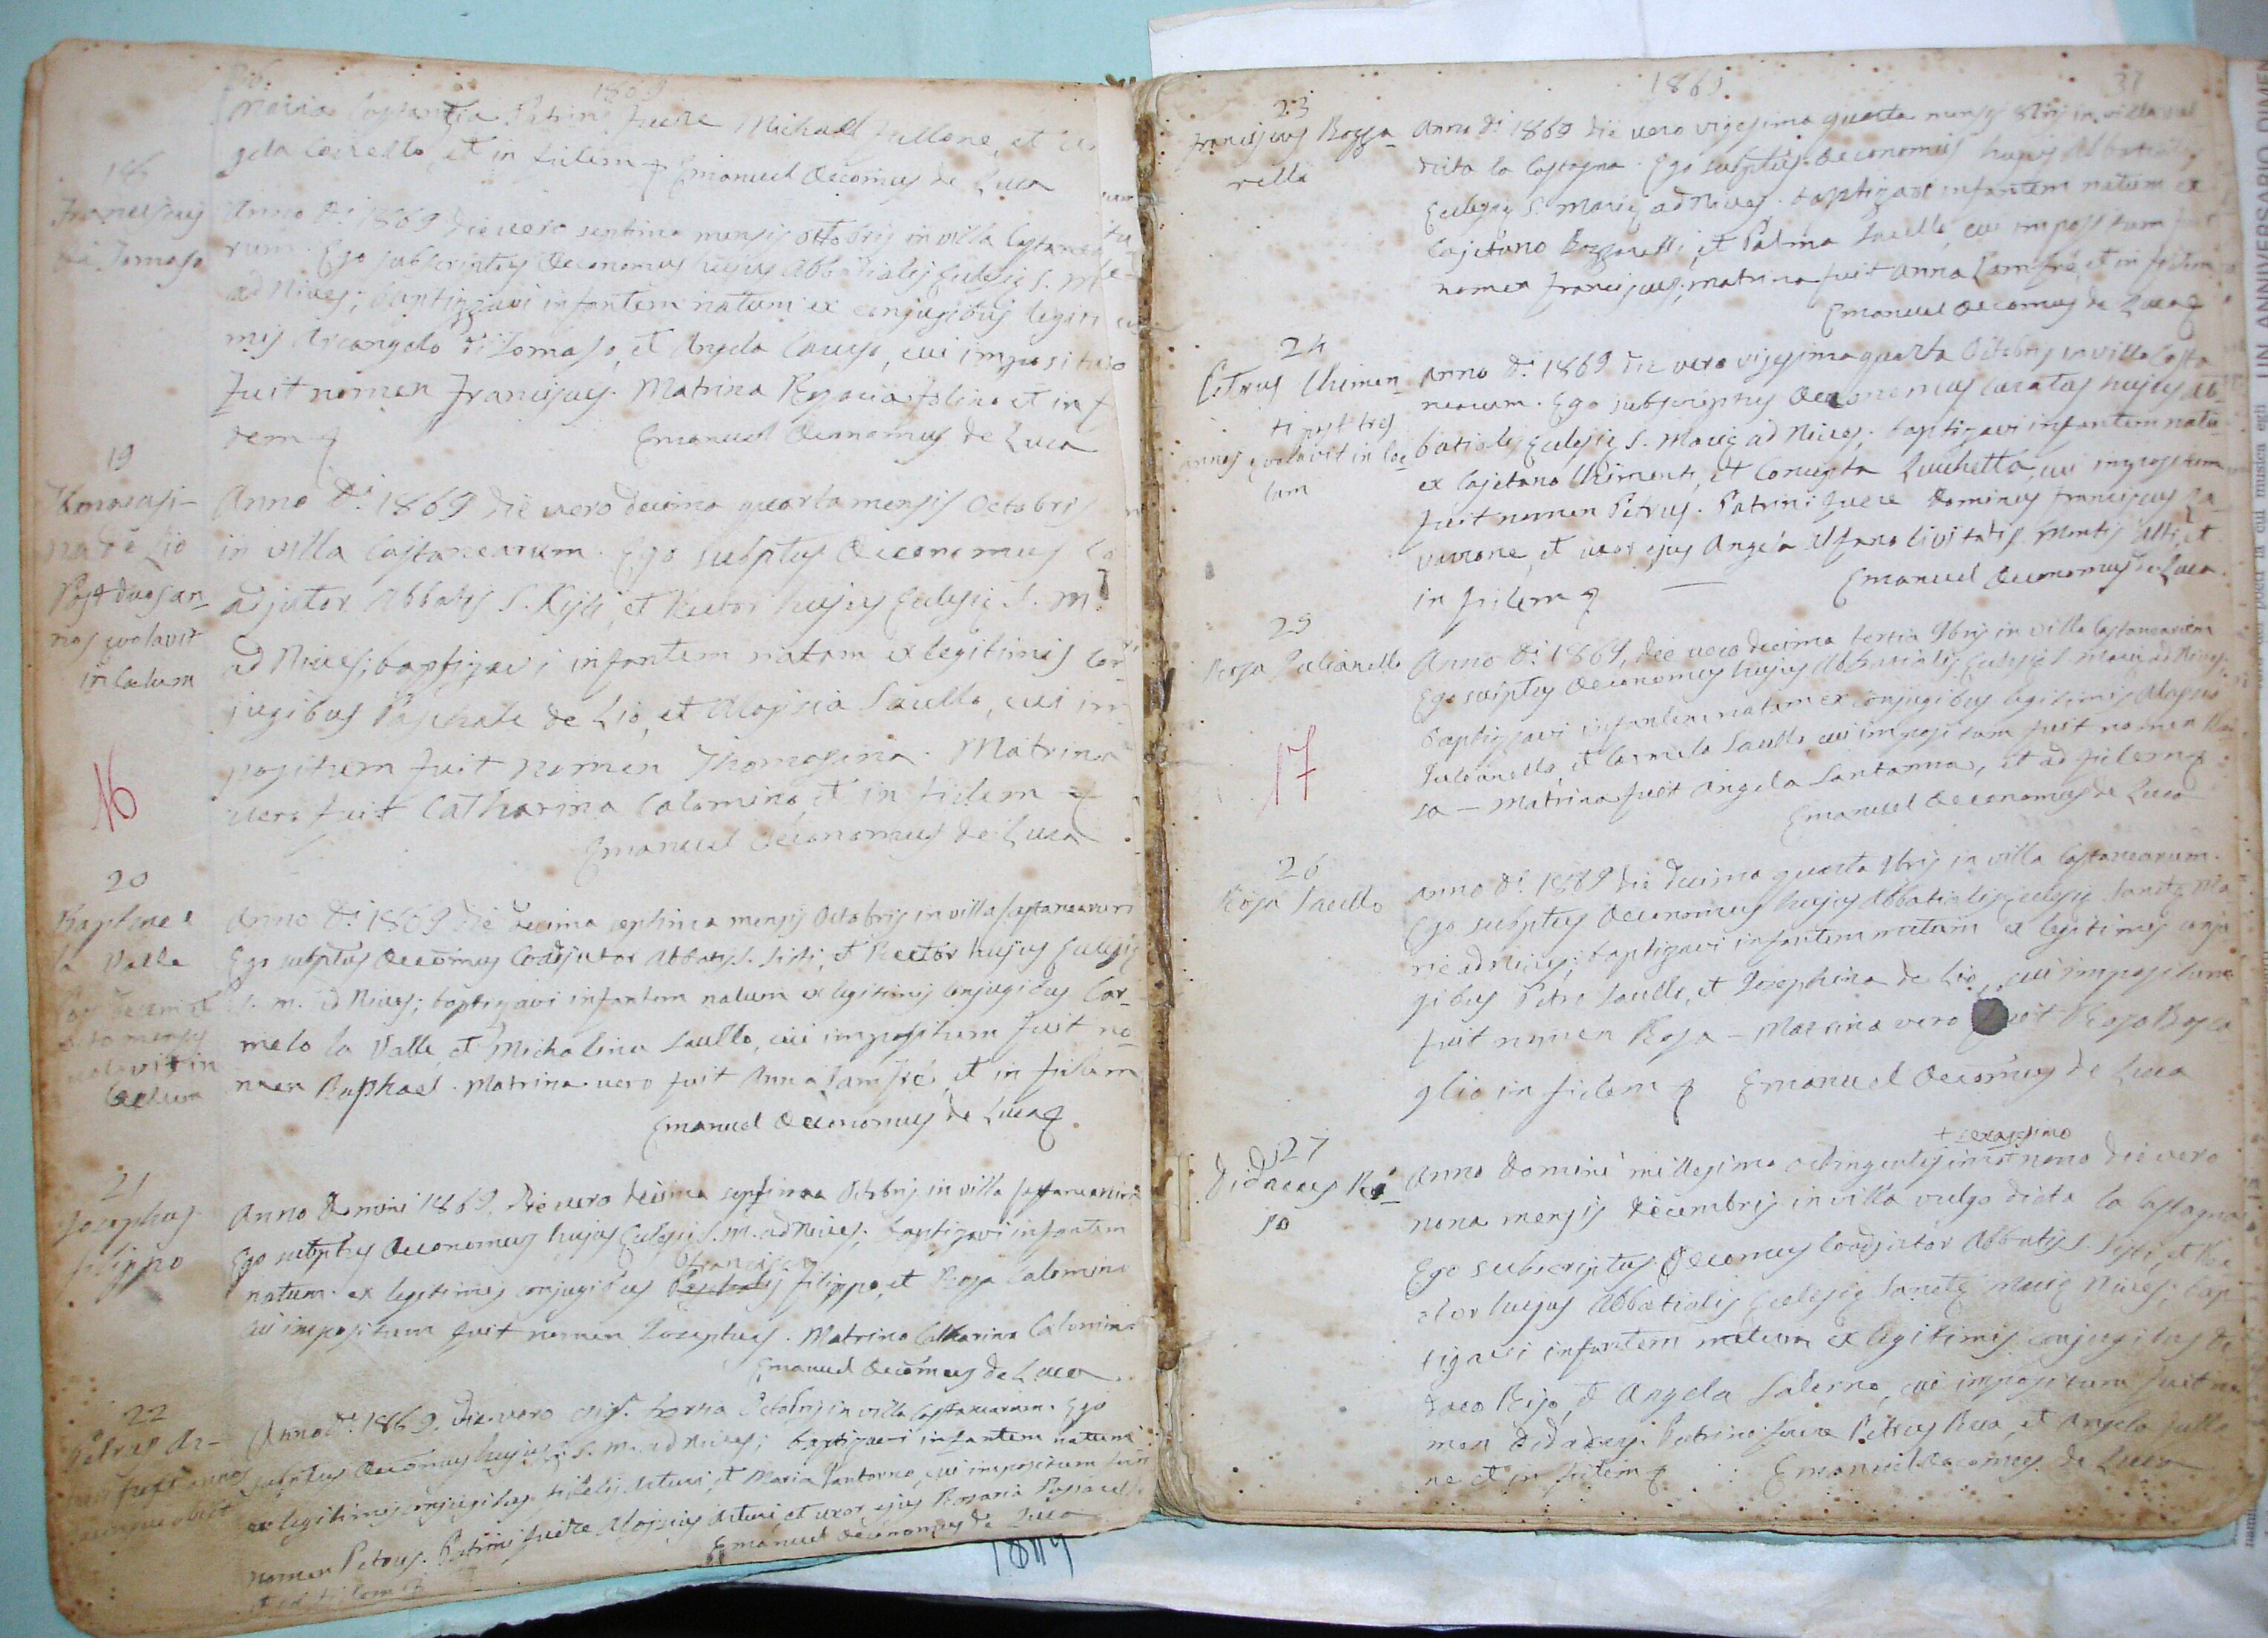 1869
Maria Patrini fuere Michael Tullone, et
gela et in fidem Emanuel Oecõmus de Luca
18
Franciscus
di Tomaso
Anno Di 1869 die vero septima mensis ottobris in villa Castanea
rum. Ego subscriptus Oeconomus hujus Abbatialis Eclesię S. Mę
ad Nives; baptizzavi infantem natum ex conjugibus legiti
mis Arcangelo di Tomaso, et Angela Caruso, cui impositum
fuit nomen Franciscus. Matrina Folino et in f
dem Emanuel Oeconomus de Luca
19
Thomasi-
na de Lio
Post duos an-
nos evolavit
in Cœlum
16
Anno Di 1869 die vero decima quarta mensis Octobris
in villa Castanearum. Ego subptus Oeconomus Co
adjutor Abbatis S. Xisti, et Rector hujus Eclesię S. M.
ad Nives; baptizavi infantem natam ex legitimis con
jugibus Paschale de Lio, et Alojsia Saullo, cui im
positum fuit nomen Thomasina. Matrina
vero fuit Catharina Colomino, et in fidem
Emanuel Oeconomus de Luca
20
Raphael
la Valle
Post decem et
octo menses
evolavit in
Cœlum
Anno Di 1869 die decima septima mensis Octobris in villa Castanearum
Ego subptus Oecõmus Coadjutor Abbatis S. Sisti, et Rector hujus Eclesię
S. M. ad Nives; baptizavi infantem natum ex legitimis conjugibus Car-
melo la Valle, et Michalina Saullo, cui impositum fuit no-
men Raphael. Matrina vero fuit Anna Lanfré, et in fidem
Emanuel Oeconomus de Luca
21
Josephus
Filippo
Anno Domini 1869. Die vero decima septima Octobris in villa Castanearum
Ego subptus Oeconomus hujus Eclesię S. M. ad Nives; baptizavi infantem
Francisco
natum ex legitimis conjugibus Paschalis Filippo, et Rosa Colomino
cui impositum fuit nomen Josephus. Matrina Catharina Colomino
Emanuel Oecõmus de Luca
22
Petrus Ar-
turi post annos
quinque obiit
Anno Di 1869. Die vero vig. tertia Octobris in villa Castanearum. Ego
subptus Oecõmus hujus E. S. M. ad Nives; baptizavi infantem natum
ex legitimis conjugibus Fidelis Arturi, et Maria Pantorno, cui impositum fuit
nomen Petrus. Patrini fuere Alojsius Arturi et uxor ejus Rosaria
et in fidem Emanuel Oeconomus de Luca
1869
37
23
Franciscus Bozza-
relli
Anno Di 1869 die vero vigesima quarta mensis 8bris in villa vul
dicta la Castagna. Ego subptus Oeconomus hujus Abbatialis
Eclesię S. Marię ad Nives. baptizavi infantem natum ex
Cajetano Bozzarelli, et Palma Saullo, cui impositum fuit
nomen Franciscus; matrina fuit Anna Lanfré, et in fidem
Emanuel Oecomus de Luca
24
Petrus Chimen
ti post tres
annos evolavit in Coe
lum
Anno Di 1869 die vero vigesima quarta Octobris in villa Casta
nearum. Ego subscriptus Oeconomus curatus hujus Ab-
batialis Eclesię S. Marię ad Nives; baptizavi infantem natu
ex Cajetano Chimenti, et Concepta Lucchetta, cui impositum
fuit nomen Petrus. Patrini fuere Dominus Franciscus La
varrone, et uxor ejus Angela Alfano Civitatis Montis Alti, et
in fidem — Emanuel Oeconomus de Luca
25
Rosa Pulcianello
17
Anno Di 1869, die vero decima tertia 9bris in villa Castanearum
Ego subptus Oeconomus hujus Abbatialis Eclesię S. Marię ad Nives;
Baptizzavi infantem natam ex conjugibus legitimis Aloysio
Pulcianello, et Carmela Saullo cui impositum fuit nomen Ro
sa — Matrina fuit Angela Santanna, et ad fidem
Emanuel Oeconomus de Luca
26
Rosa Saullo
Anno Di 1869 die decima quarta 9bris in villa Castanearum.
Ego subptus Oeconomus hujus Abbatialis Eclesię Sanctę Ma
rię ad Nives; baptizavi infantem natam ex legitimis conju
gibus Petro Saullo, et Josephina de Lio, cui impositum
fuit nomen Rosa — Matrina vero fuit Rosa Bosco
glio in fidem Emanuel Oecõmus de Luca
27
Didacus Ri-
so
+ sexagesimo
Anno Domini millesimo octingentesimo + nono die vero
nona mensis decembris in villa vulgo dicta la Castagna
Ego subscriptus Oecomus Coadjutor Abbatis S. Sisti, et Re
ctor hujus Abbatialis Eclesię Sanctę Marię Nives; bap
tizavi infantem natum ex legitimis conjugibus Di
daco Riso, et Angela Salerno, cui impositum fuit no
men Didacus. Patrini fuere Petrus Bua, et Angela Tullo
ne et in fidem Emanuel Oecomus de Luca